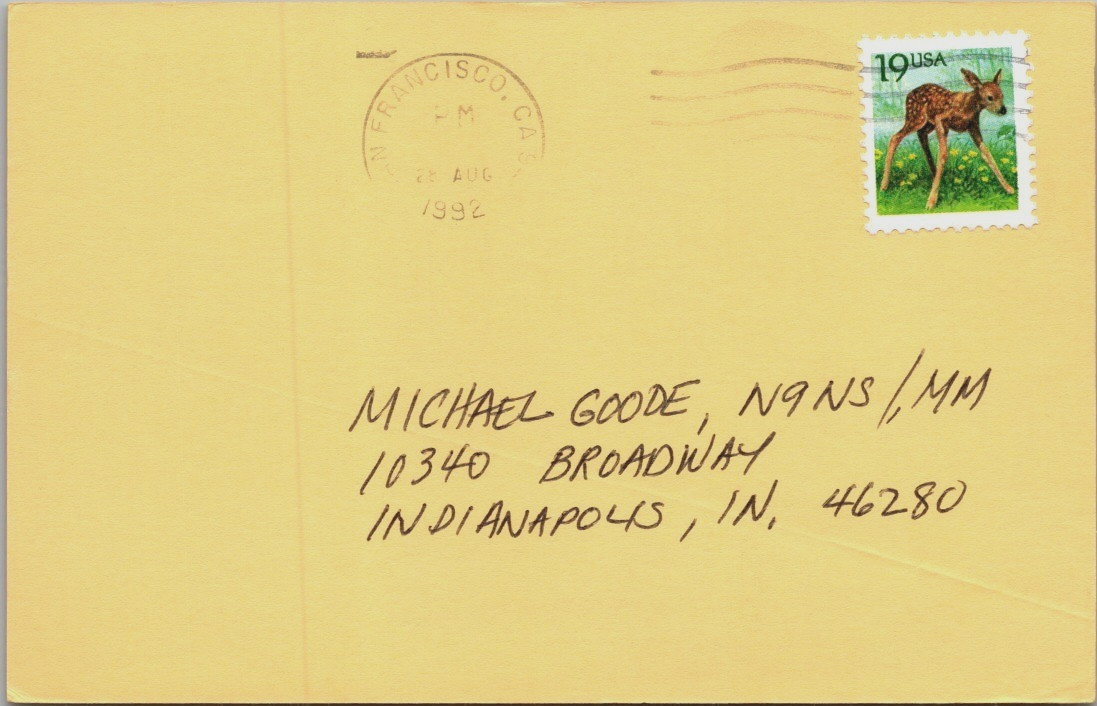 SAN FRANCISCO, CA
PM
AUG
1992
19 USA
MICHAEL GOODE, N9NS/MM
10340 BROADWAY
INDIANAPOLIS, IN. 46280